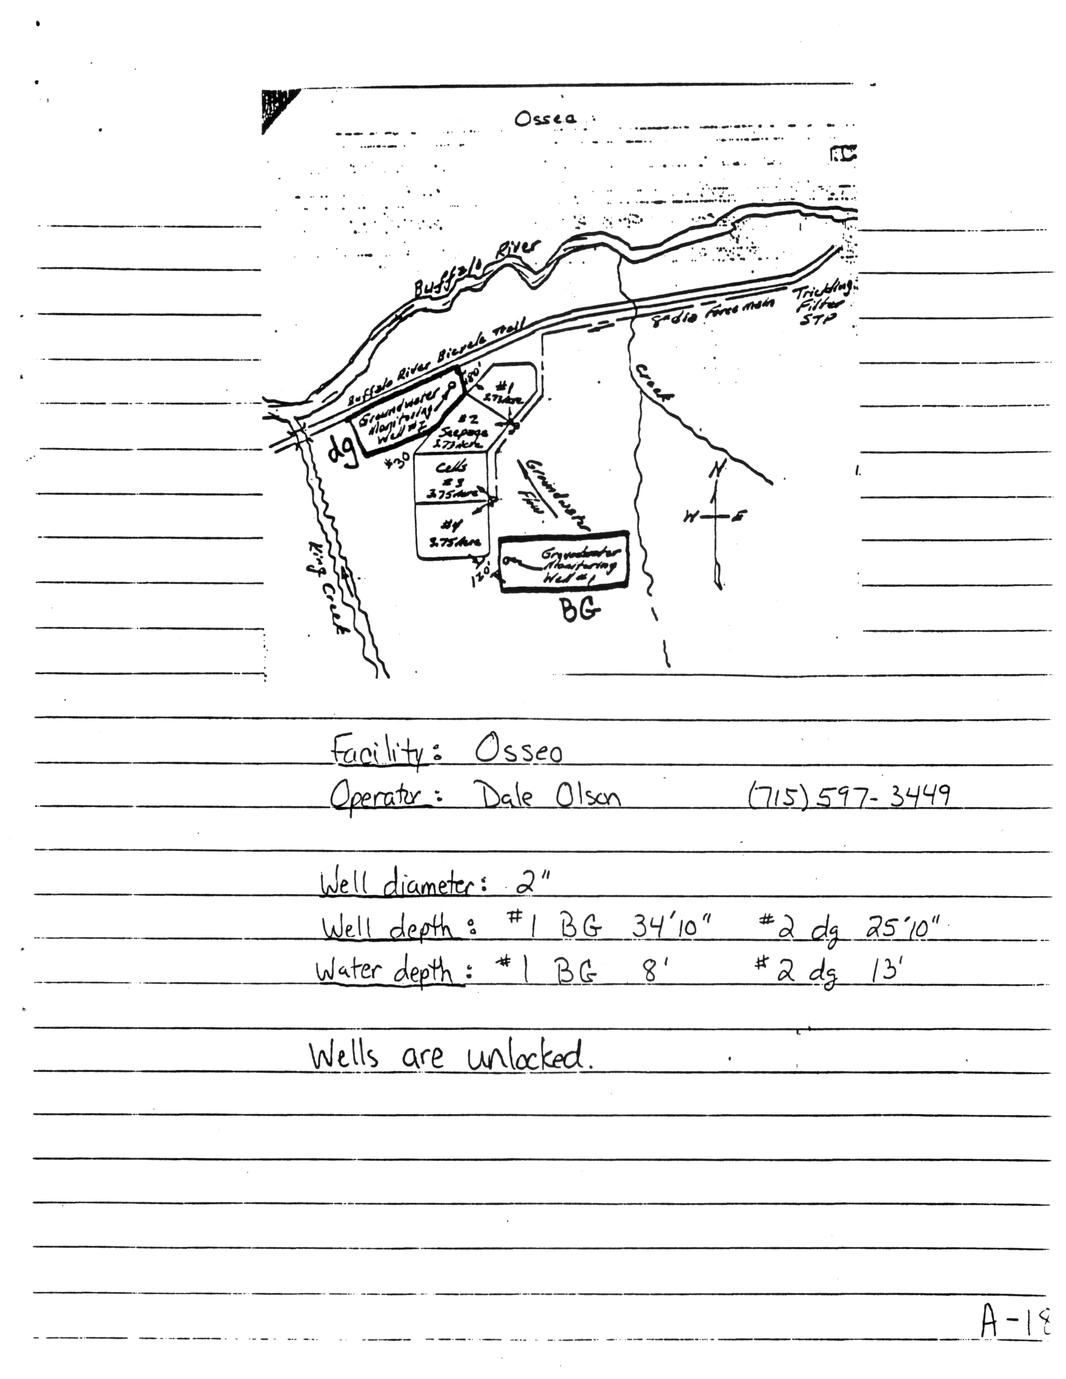 Osseo
Buffalo River
Buffalo River Bicycle Trail
8" dia Force main
Trickling
Filter
STP
Creek
80'
#1
3.75 Acre
Groundwater
Monitoring
Well #2
dg
#30
#2
Seepage
3.75 Acre
Cells
#3
3.75 Acre
#4
3.75 Acre
Groundwater
Flow
N
W E
Groundwater
Monitoring
Well #1
120'
BG
King Creek
Facility: Osseo
Operator: Dale Olson (715) 597-3449
Well diameter: 2"
Well depth: #1 BG 34'10" #2 dg 25'10"
Water depth: #1 BG 8' #2 dg 13'
Wells are unlocked.
A-18